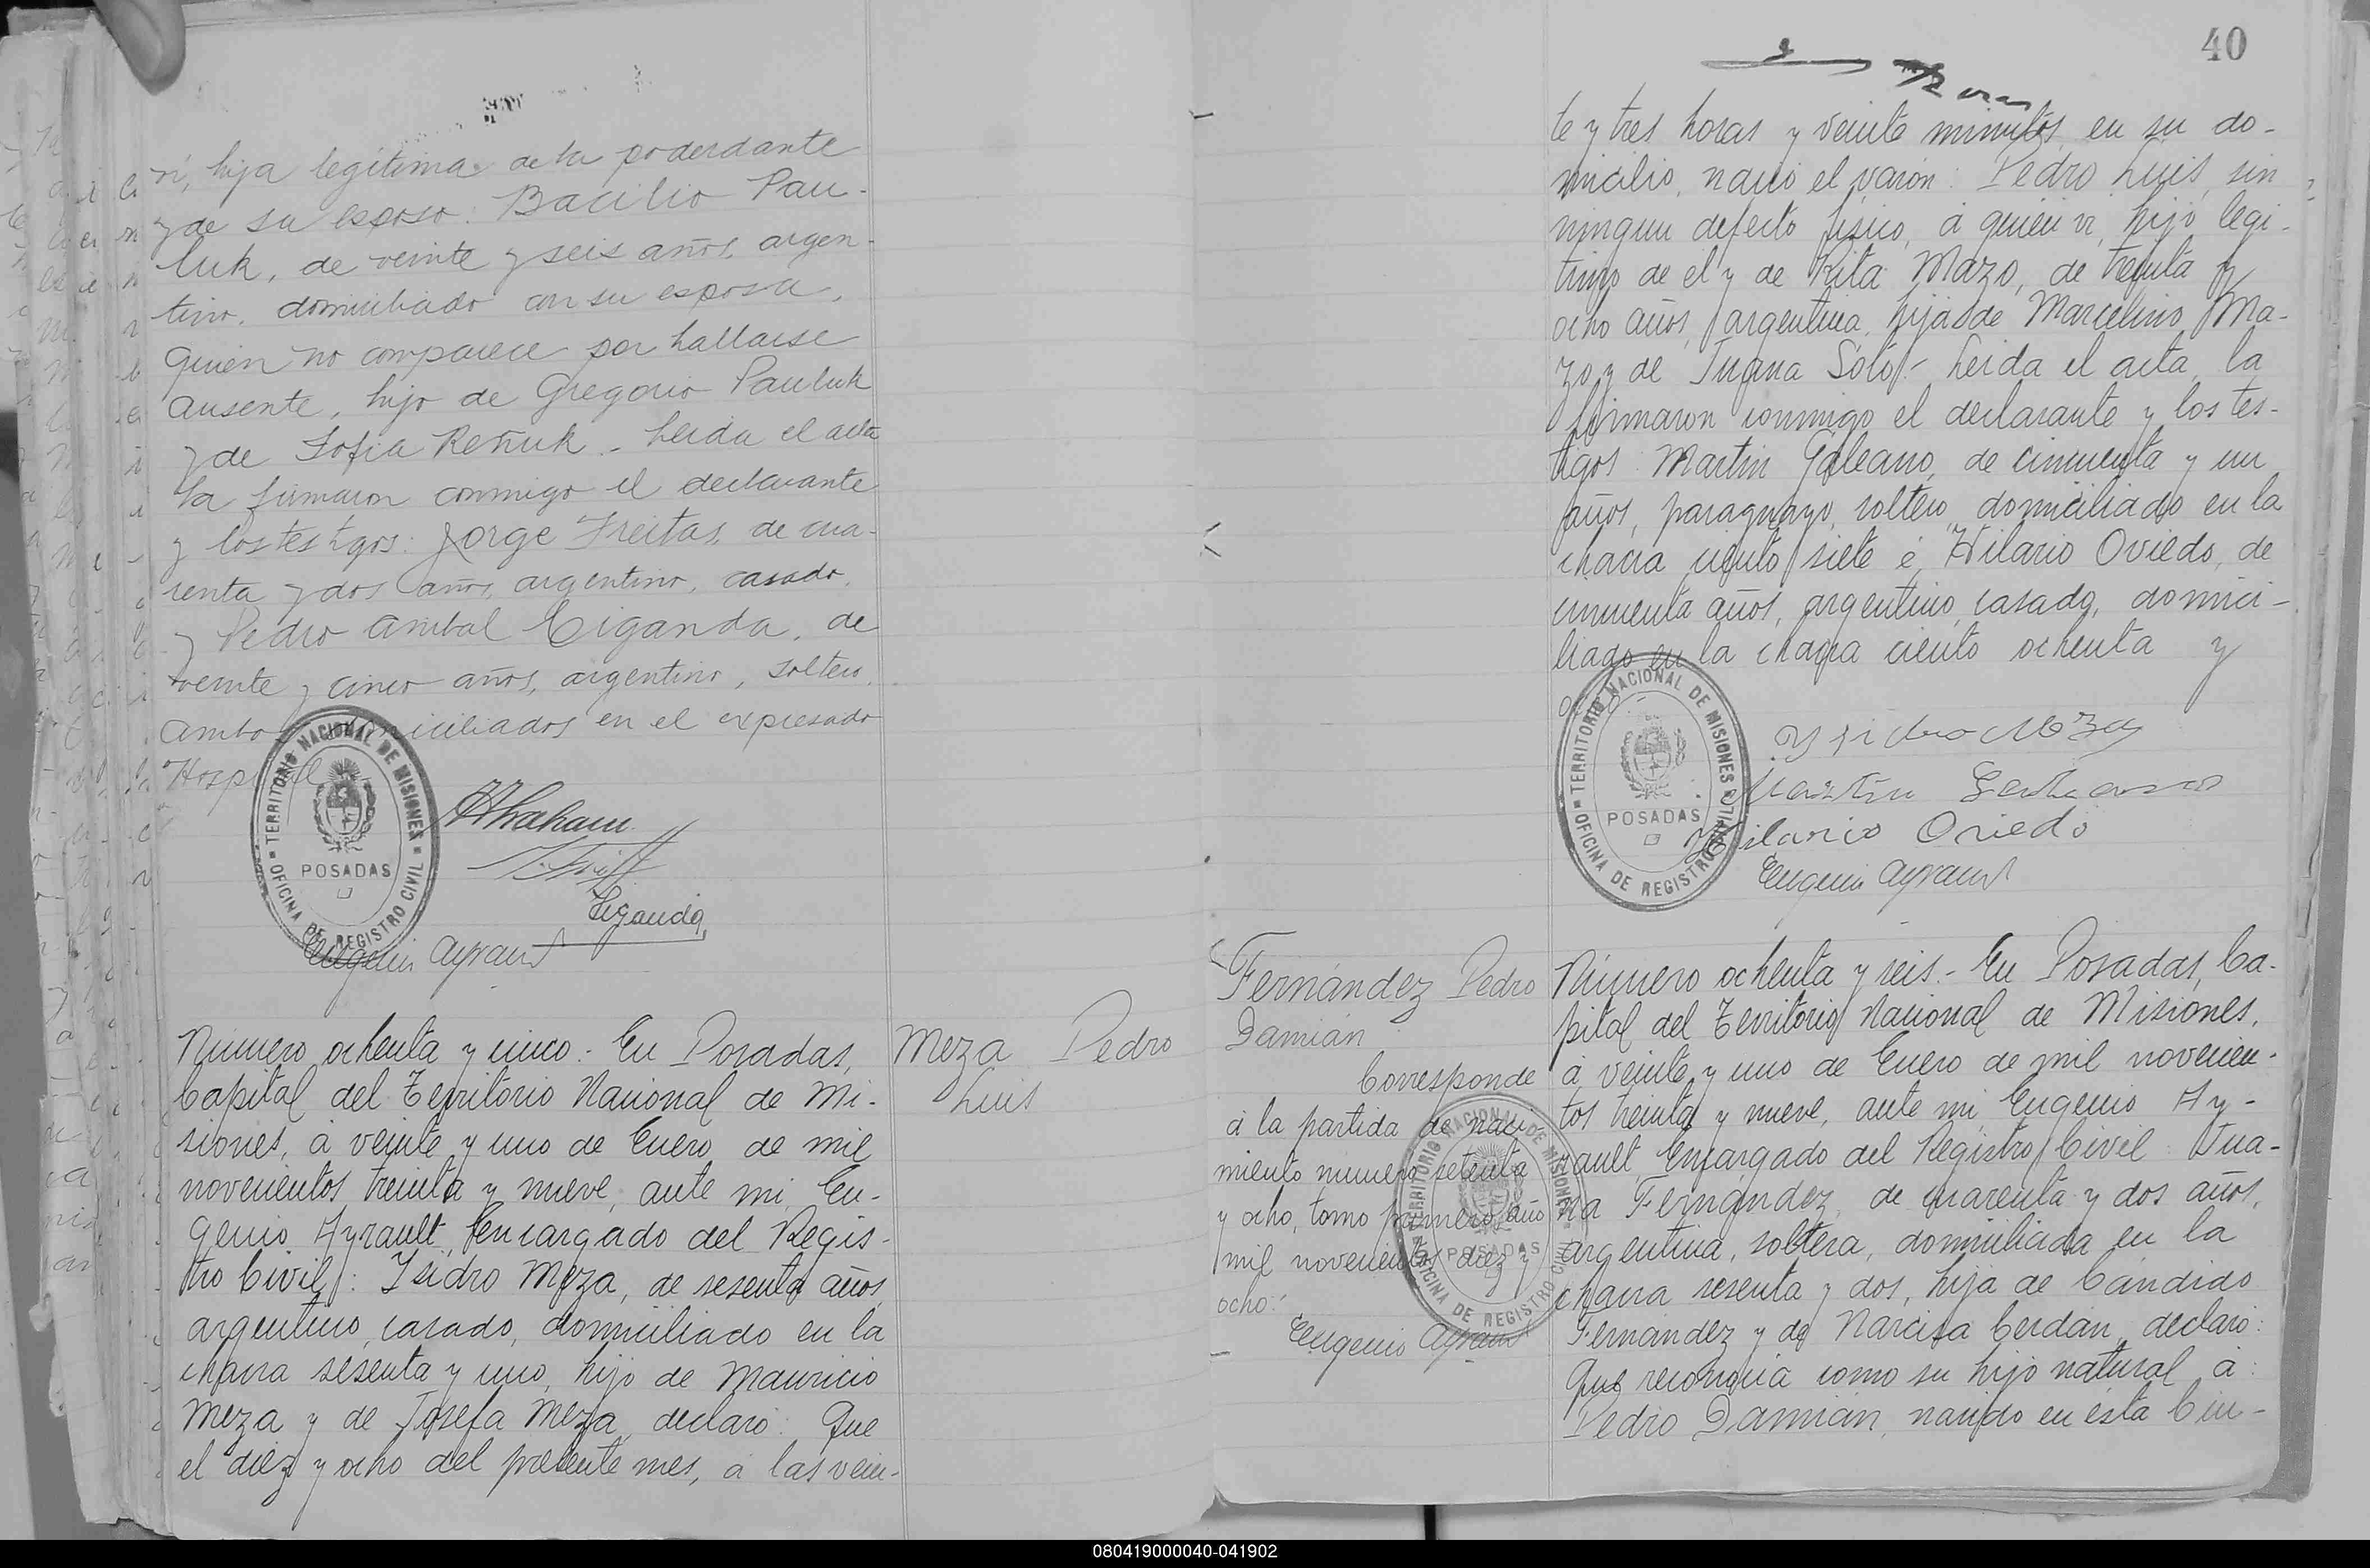 ri, hija legítima de la poderdante
y de su esposo: Bacilio Pau-
luk, de veinte y seis años, argen-
tino, domiciliado con su esposa,
quien no comparece por hallarse
ausente, hijo de Gregorio Pauluk
y de Sofia Reñuk - Leida el acta
la firmaron conmigo el declarante
y los testigos: Jorge Freitas, de cua-
renta y dos años, argentino, casado,
y Pedro Anibal Ciganda, de
veinte y cinco años, argentino, soltero,
ambos domiciliados en el expresado
Hospital
TERRITORIO NACIONAL DE MISIONES
POSADAS
OFICINA DE REGISTRO CIVIL
Ciganda
Eugenio Ayrault
Número ochenta y cinco.- En Posadas,
Capital del Territorio Nacional de Mi-
siones, á veinte y uno de Enero de mil
novecientos treinta y nueve, ante mi, Eu-
genio Ayrault, Encargado del Regis-
tro Civil: Isidro Meza, de sesenta años,
argentino, casado, domiciliado en la
chacra sesenta y uno, hijo de Mauricio
Meza y de Josefa Meza, declaró: Que
el diez y ocho del presente mes, á las vein-
Meza Pedro
Luis
40
te y tres horas y veinte minutos, en su do-
micilio, nació el varón: Pedro Luis, sin
ningun defecto físico, á quien vi, hijo legi-
timo de el y de Rita Mazo, de treinta y
ocho años, argentina, hija de Marcelino Ma-
zo y de Juana Soto.- Leida el acta, la
firmaron conmigo el declarante y los tes-
tigos: Martin Galeano, de cincuenta y un
años, paraguayo, soltero, domiciliado en la
chacra ciento siete é Hilario Oviedo, de
cincuenta años, argentino, casado, domici-
liado en la chacra ciento ochenta y
ocho.-
TERRITORIO NACIONAL DE MISIONES
POSADAS
OFICINA DE REGISTRO CIVIL
Ysidro Meza
Martin Galeano
Hilario Oviedo
Eugenio Ayrault
Fernández Pedro
Damián
Corresponde
á la partida de naci-
miento numero setenta
y ocho, tomo primero, año
mil novecientos diez y
ocho.-
Eugenio Ayrault
TERRITORIO NACIONAL DE MISIONES
POSADAS
OFICINA DE REGISTRO CIVIL
Número ochenta y seis.- En Posadas, Ca-
pital del Territorio Nacional de Misiones,
á veinte y uno de Enero de mil novecien-
tos treinta y nueve, ante mi, Eugenio Ay-
rault, Encargado del Registro Civil: Jua-
na Fernández, de cuarenta y dos años,
argentina, soltera, domiciliada en la
chacra sesenta y dos, hija de Cándido
Fernandez y de Narcisa Cerdán, declaró:
Que reconocia como su hijo natural á:
Pedro Damián, nacido en esta Ciu-
080419000040-041902